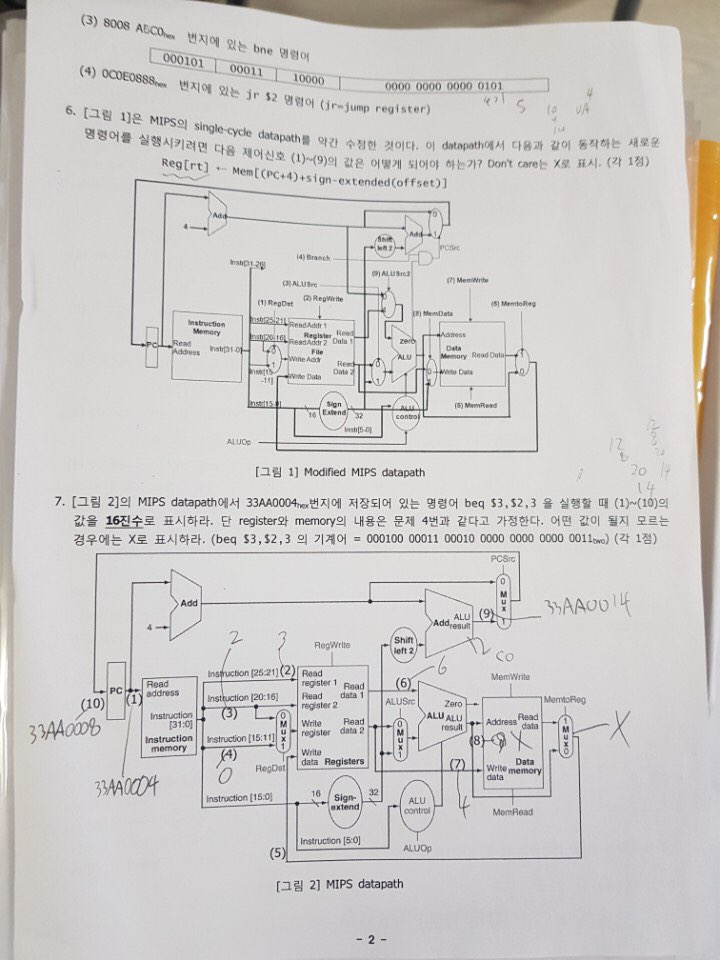 (3) 8008 ABC0hex 번지에 있는 bne 명령어
000101 00011 10000 0000 0000 0000 0101
(4) 0C0E0888hex 번지에 있는 jr $2 명령어 (jr=jump register)
5
10
4
6. [그림 1]은 MIPS의 single-cycle datapath를 약간 수정한 것이다. 이 datapath에서 다음과 같이 동작하는 새로운
명령어를 실행시키려면 다음 제어신호 (1)~(9)의 값은 어떻게 되어야 하는가? Don't care는 X로 표시. (각 1점)
Reg[rt] ← Mem[(PC+4)+sign-extended(offset)]
Add
4
Shift left 2
Add
0
1
PCSrc
Instr[31-26]
(4) Branch
(9) ALUSrc2
(3) ALUSrc
(7) MemWrite
(1) RegDst
(2) RegWrite
(6) MemtoReg
(8) MemData
PC
Read Address
Instruction Memory
Instr[31-0]
Instr[25-21]
Instr[20-16]
Instr[15-11]
Instr[15-0]
0
1
Read Addr 1
Read Addr 2
Write Addr
Write Data
Register File
Read Data 1
Read Data 2
0
1
0
1
zero
ALU
0
1
Address
Data Memory
Read Data
Write Data
1
0
(5) MemRead
Sign Extend
16
32
ALU control
Instr[5-0]
ALUOp
[그림 1] Modified MIPS datapath
12
8
20
14
12
8
20
14
7. [그림 2]의 MIPS datapath에서 33AA0004hex번지에 저장되어 있는 명령어 beq $3,$2,3 을 실행할 때 (1)~(10)의
값을 16진수로 표시하라. 단 register와 memory의 내용은 문제 4번과 같다고 가정한다. 어떤 값이 될지 모르는
경우에는 X로 표시하라. (beq $3,$2,3 의 기계어 = 000100 00011 00010 0000 0000 0000 0011two) (각 1점)
PCSrc
Add
4
0
Mux
1
(9)
33AA0014
Add ALU result
Shift left 2
RegWrite
2
3
6
PC
(10)
(1)
33AA0008
33AA0004
Read address
Instruction [31:0]
Instruction memory
Instruction [25:21] (2)
Instruction [20:16]
(3)
Instruction [15:11]
(4)
0
0
Mux
1
RegDst
Read register 1
Read register 2
Write register
Write data
Registers
Read data 1
Read data 2
(6)
ALUSrc
0
Mux
1
Zero
ALU ALU result
(8)
X
(7)
4
MemWrite
Address
Read data
Write data
Data memory
MemRead
MemtoReg
1
Mux
0
X
Instruction [15:0]
16
Sign-extend
32
ALU control
Instruction [5:0]
ALUOp
(5)
[그림 2] MIPS datapath
- 2 -